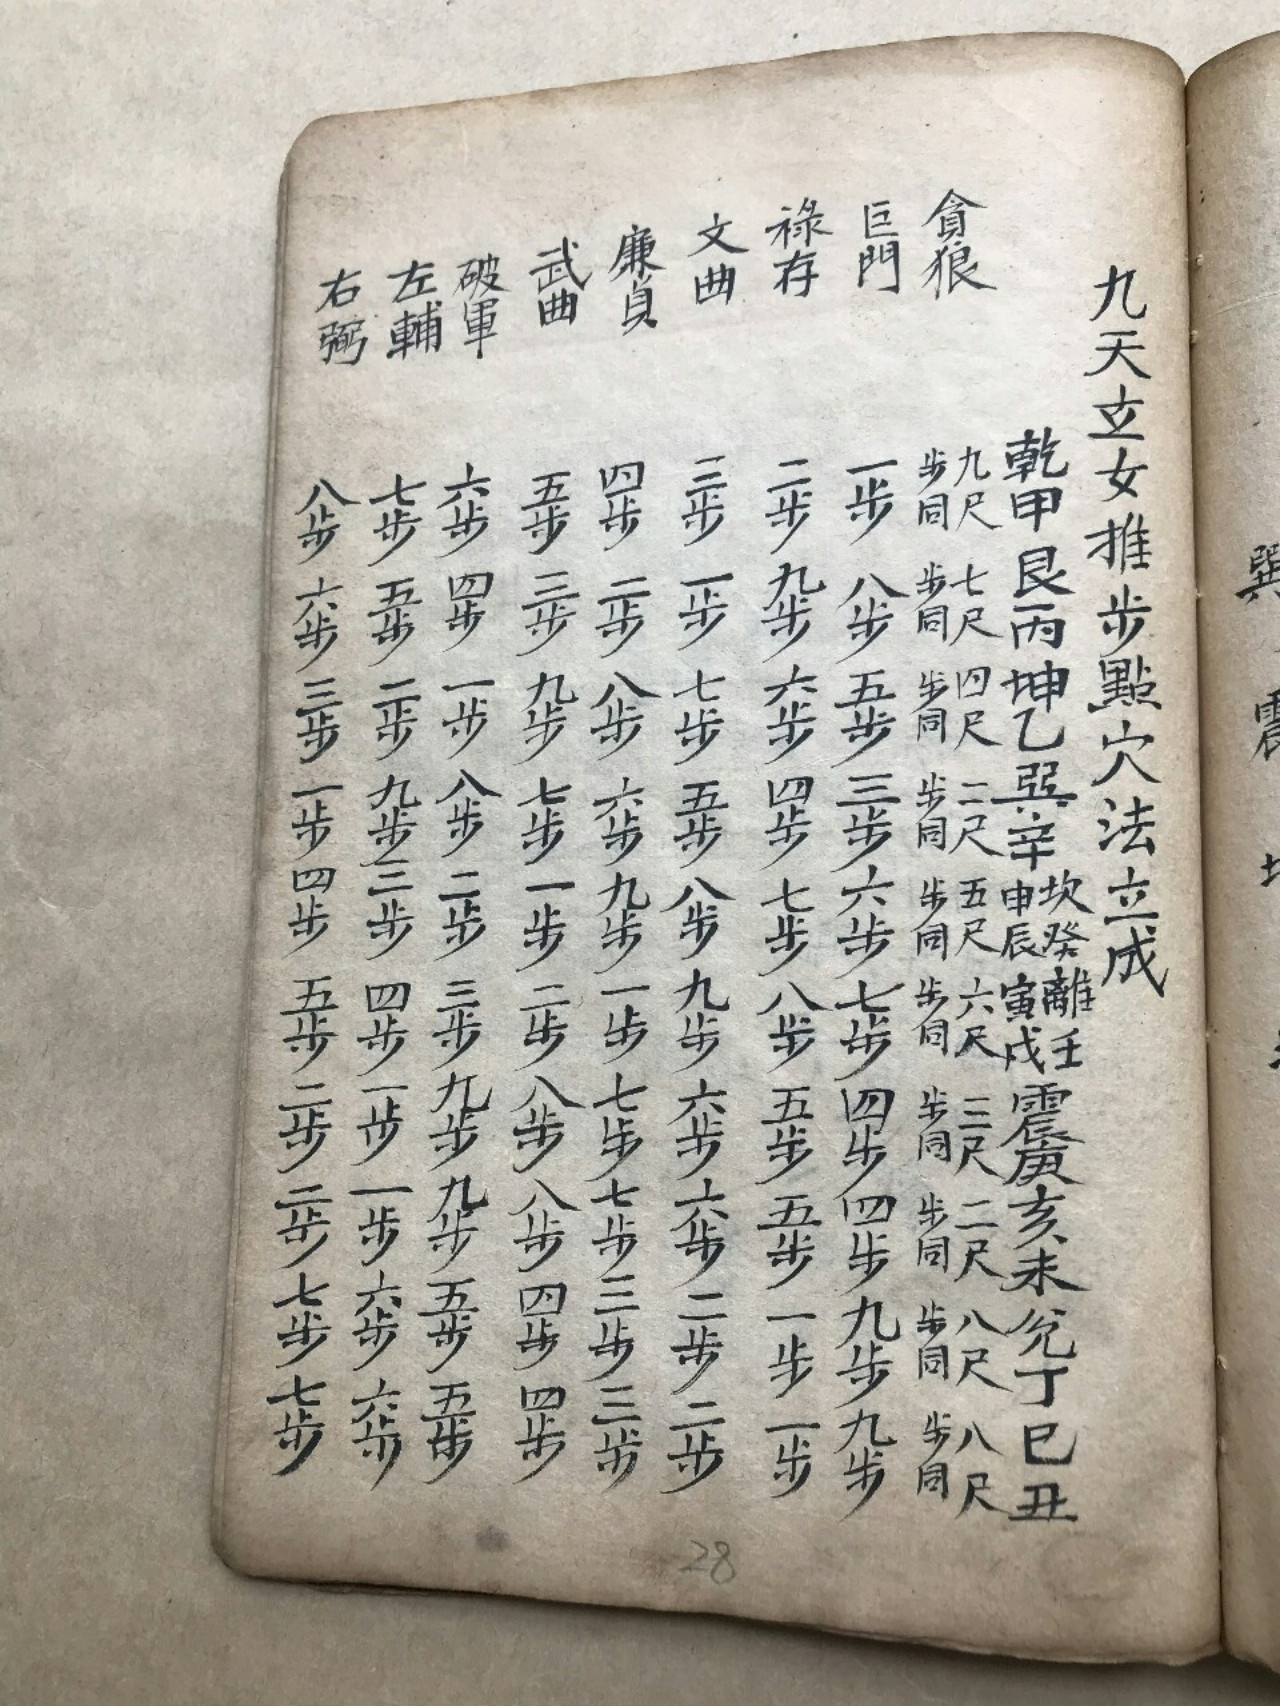 九天玄女推步點穴法立成
乾甲 艮丙 坤乙 巽辛 坎癸申辰 離壬寅戌 震庚 亥未 兌丁 巳丑
貪狼 九尺步同 七尺步同 四尺步同 二尺步同 五尺步同 六尺步同 三尺步同 二尺步同 八尺步同 八尺步同
巨門 一步 八步 五步 三步 六步 七步 四步 四步 九步 九步
祿存 二步 九步 六步 四步 七步 八步 五步 五步 一步 一步
文曲 三步 一步 七步 五步 八步 九步 六步 六步 二步 二步
廉貞 四步 二步 八步 六步 九步 一步 七步 七步 三步 三步
武曲 五步 三步 九步 七步 一步 二步 八步 八步 四步 四步
破軍 六步 四步 一步 八步 二步 三步 九步 九步 五步 五步
左輔 七步 五步 二步 九步 三步 四步 一步 一步 六步 六步
右弼 八步 六步 三步 一步 四步 五步 二步 二步 七步 七步
28